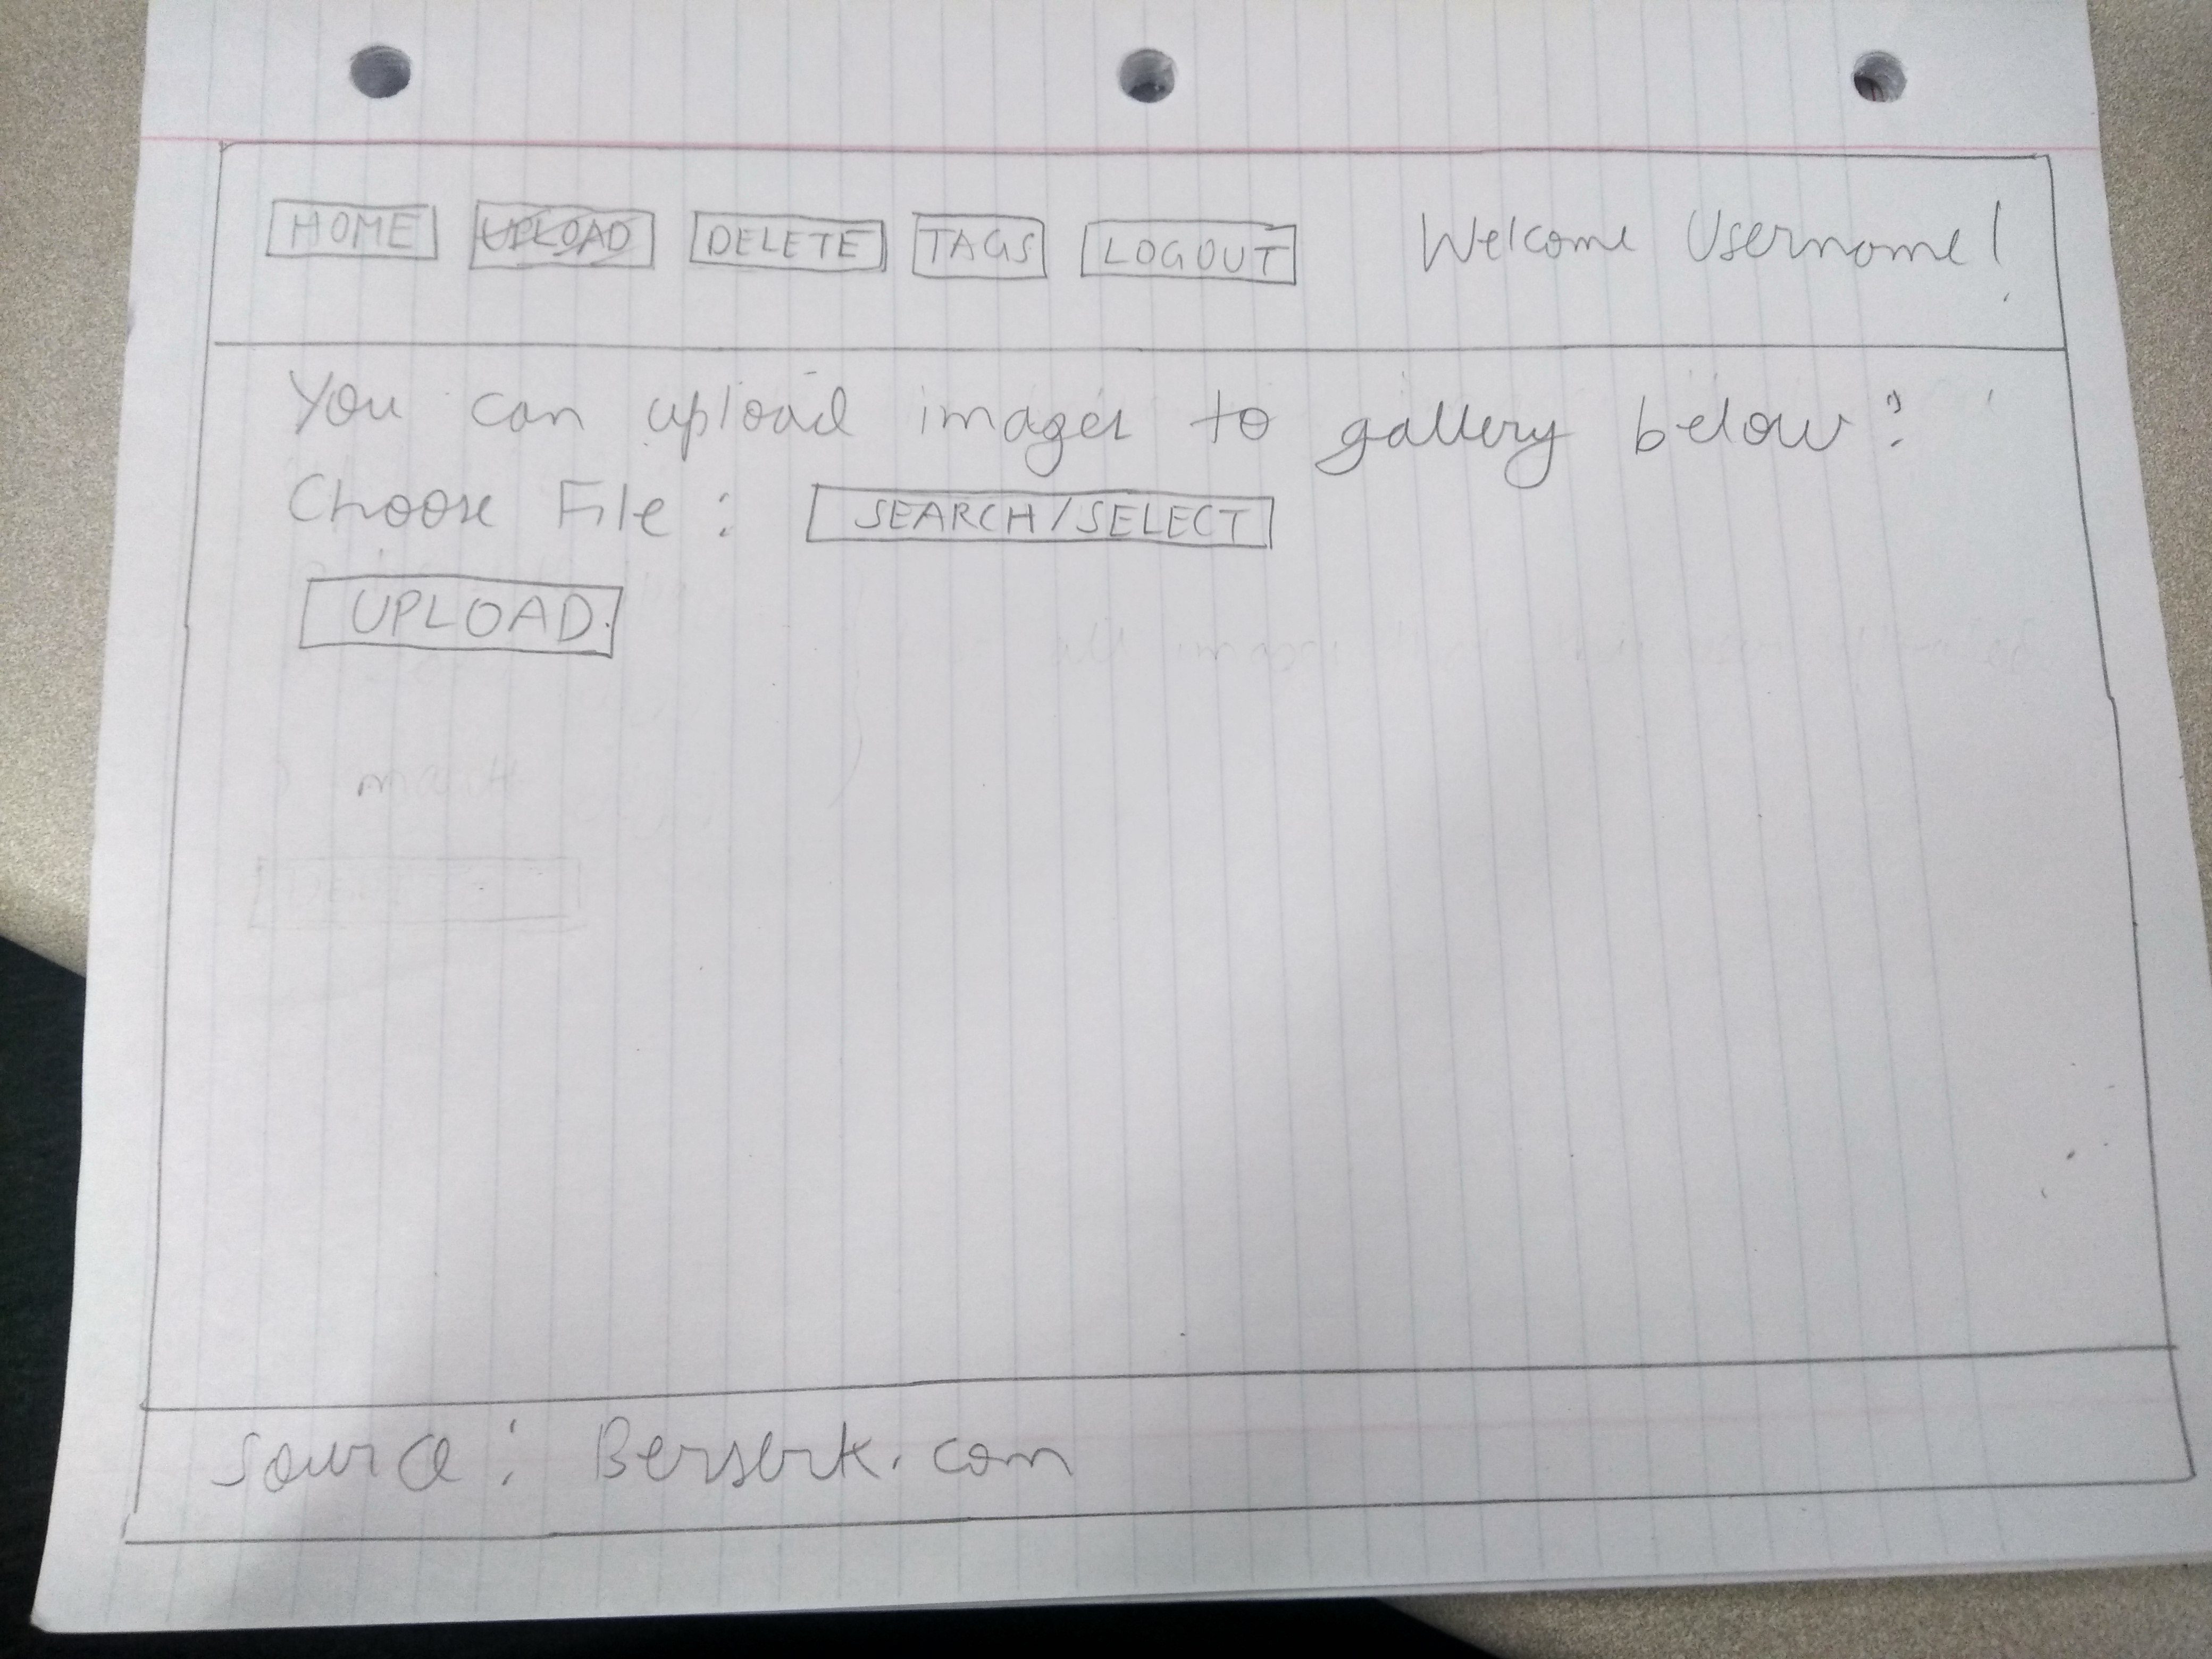 HOME UPLOAD DELETE TAGS LOGOUT Welcome Username!
You can upload images to gallery below:
Choose File: SEARCH/SELECT
UPLOAD
Source: Berserk.com